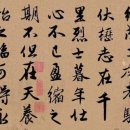 伏櫪志在千
里烈士暮年壯
心不已盈縮之
期不但在天養
怡之
可得永